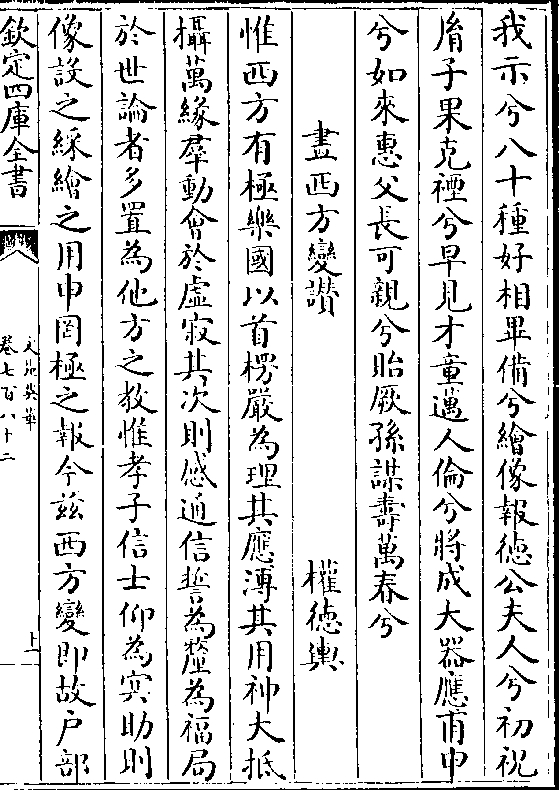 我示兮八十種好相畢備兮繪像報德公夫人兮初祝
胤子果克禋兮早見才童邁人倫兮將成大器應甫申
兮如來惠父長可親兮貽厥孫謀壽萬春兮
畫西方變讃 權德輿
惟西方有極樂國以首楞嚴為理其應漙其用神大抵
攝萬緣羣動會於虛寂其次則感通信誓為釐為福局
於世論者多置為他方之教惟孝子信士仰為冥助則
像設之綵繪之用申罔極之報今兹西方變即故户部
欽定四庫全書
文苑英華
卷七百八十二
上